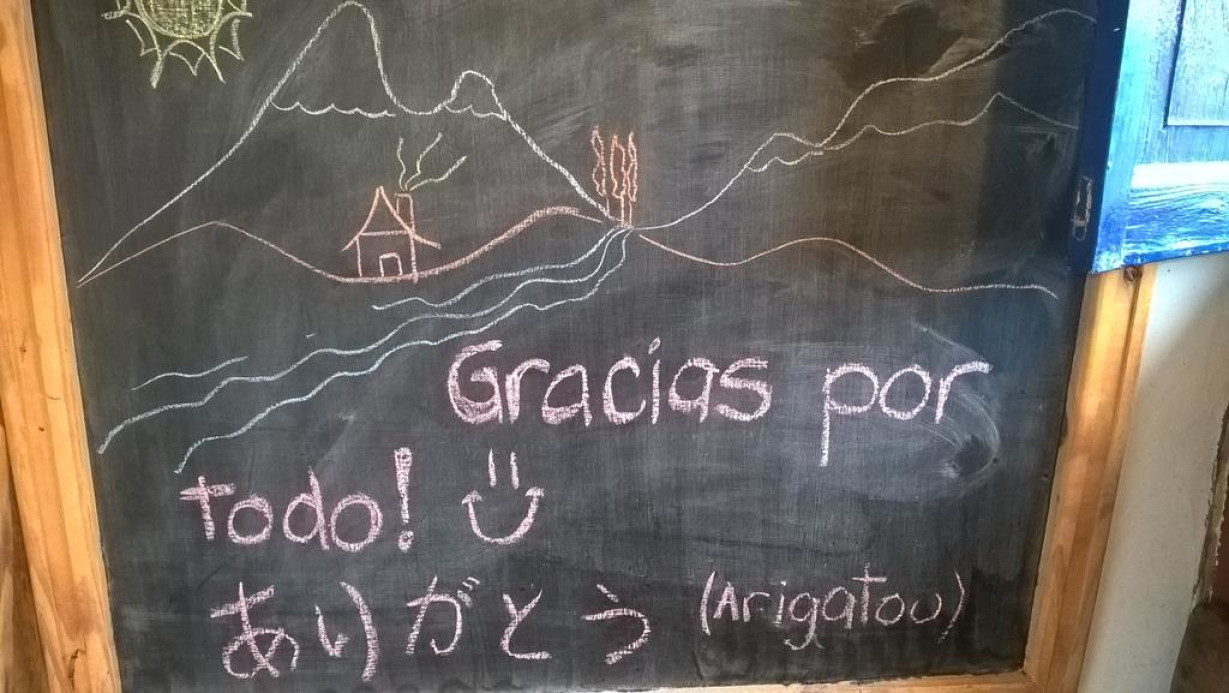 Gracias por
todo!
ありがとう (Arigatou)